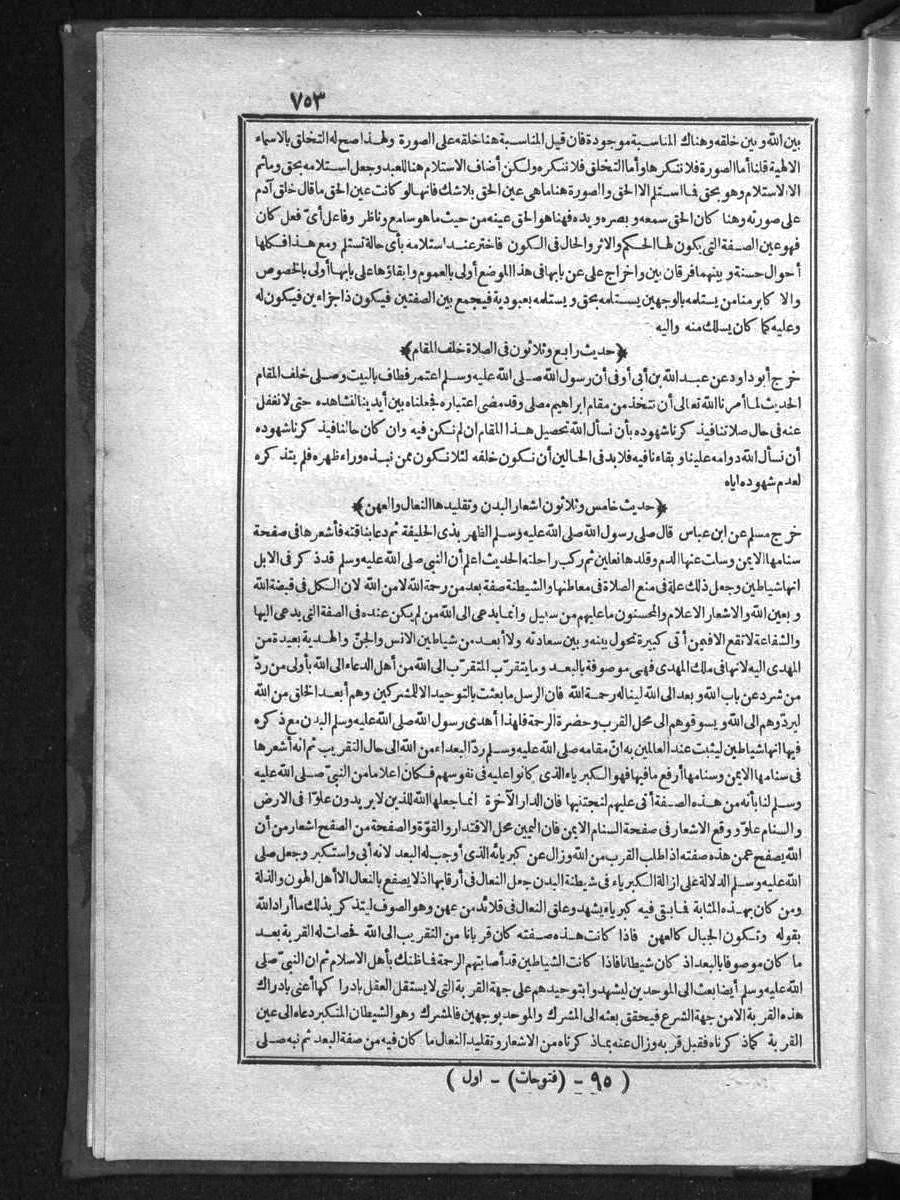 ٧٥٣
بين الله وبين خلقه وهناك المناسبة موجودة فان قيل المناسبة هنا خلقه على الصورة ولهذا صح له التخلق بالاسماء
الالهية قلنا أما الصورة فلا ننكرها وأما التخلق فلا ننكره ولكن أضاف الاستلام هنا للعبد وجعل استلامه بحق وماثم
الا الاستلام وهو بحق فما استلم الا الحق والصورة هنا ماهى عين الحق بلا شك فانها لو كانت عين الحق ما قال خلق آدم
على صورته وهنا كان الحق سمعه وبصره ويده فهنا هو الحق عينه من حيث ما هو سامع وناظر وفاعل أىّ فعل كان
فهو عين الصفة التى يكون لها الحكم والاثر والحال فى الكون فاختر عند استلامه بأى حالة تستلم ومع هذا فكلها
أحوال حسنة وبينهما فرقان بين واخراج على عن بابها فى هذا الموضع أولى بالعموم وابقاؤها على بابها أولى بالخصوص
والا كابر منا من يستلمه بالوجهين يستلمه بحق ويستلمه بعبودية فيجمع بين الصفتين فيكون ذا جزاءين فيكون له
وعليه كما كان يسلك منه واليه
﴿حديث رابع وثلاثون فى الصلاة خلف المقام﴾
خرج أبو داود عن عبد الله بن أبى أوفى أن رسول الله صلى الله عليه وسلم اعتمر فطاف بالبيت وصلى خلف المقام
الحديث لما أمرنا الله تعالى أن نتخذ من مقام ابراهيم مصلى وقد مضى اعتباره جعلناه بين أيدينا لنشاهده حتى لا نغفل
عنه فى حال صلاتنا فيذكرنا شهوده بأن نسأل الله تحصيل هذا المقام ان لم نكن فيه وان كان حالنا فيذكرنا شهوده
أن نسأل الله دوامه علينا وبقاءنا فيه فلا بد فى الحالين أن نكون خلفه لئلا نكون ممن نبذه وراء ظهره فلم يتذكره
لعدم شهوده اياه
﴿حديث خامس وثلاثون اشعار البدن وتقليدها النعال والعهن﴾
خرج مسلم عن ابن عباس قال صلى رسول الله صلى الله عليه وسلم الظهر بذى الحليفة ثم دعا بناقته فأشعرها فى صفحة
سنامها الايمن وسات عنها الدم وقلدها نعلين ثم ركب راحلته الحديث اعلم أن النبى صلى الله عليه وسلم قد ذكر فى الابل
انها شياطين وجعل ذلك علة فى منع الصلاة فى معاطنها والشيطنة صفة بعد من رحمة الله لا من الله لان الكل فى قبضة الله
وبعين الله والاشعار الاعلام والمحسنون ما عليهم من سبيل وانما يدعى الى الله من لم يكن عنده فى الصفة التى يدعى اليها
والشفاعة لا تقع الا فيمن أتى كبيرة تحول بينه وبين سعادته ولا أبعد من شياطين الانس والجنّ والهدية بعيدة من
المهدى اليه لانها فى ملك المهدى فهى موصوفة بالبعد وما يتقرّب المتقرّب الى الله من أهل الدعاء الى الله بأولى من ردّ
من شرد عن باب الله وبعد الى الله ليناله رحمة الله فان الرسل ما بعثت بالتوحيد الا للمشركين وهم أبعد الخلق من الله
ليردّوهم الى الله ويسوقوهم الى محل القرب وحضرة الرحمة فلهذا أهدى رسول الله صلى الله عليه وسلم البدن مع ذكره
فيها انها شياطين ليثبت عند العالمين به انّ مقامه صلى الله عليه وسلم ردّ البعداء من الله الى حال التقريب ثم انه أشعرها
فى سنامها الايمن وسنامها أرفع ما فيها فهو الكبرياء الذى كانوا عليه فى نفوسهم فكان اعلاما من النبىّ صلى الله عليه
وسلم لنا بأنه من هذه الصفة أتى عليهم لنجتنبها فان الدار الآخرة انما جعلها الله للذين لا يريدون علوّا فى الارض
والسنام علوّ ووقع الاشعار فى صفحة السنام الايمن فان اليمين محل الاقتدار والقوّة والصفحة من الصفح اشعار من أن
الله يصفح عمن هذه صفته اذا طلب القرب من الله وزال عن كبريائه الذى أوجب له البعد لانه أبى واستكبر وجعل صلى
الله عليه وسلم الدلالة على ازالة الكبرياء فى شيطنة البدن جعل النعال فى أرقابها اذ لا يصفع بالنعال الا أهل الهون والذلة
ومن كان بهذه المثابة فما بقى فيه كبرياء يشهد وعلق النعال فى قلائد من عهن وهو الصوف ليتذكر بذلك ما أراد الله
بقوله وتكون الجبال كالعهن فاذا كانت هذه صفته كان قربانا من التقريب الى الله فحصلت له القربة بعد
ما كان موصوفا بالبعد اذ كان شيطانا فاذا كانت الشياطين قد أصابتهم الرحمة فما ظنك بأهل الاسلام ثم ان النبىّ صلى
الله عليه وسلم أيضا بعث الى الموحدين ليشهدوا بتوحيدهم على جهة القربة التى لا يستقل العقل بادراكها أعنى بادراك
هذه القربة الا من جهة الشرع فيحقق بعثه الى المشرك والموحد بوجهين فالمشرك وهو الشيطان المتكبر دعاه الى عين
القربة كما ذكرناه فقبل قربه وزال عنه بما ذكرناه من الاشعار وتقليد النعال ما كان فيه من صفة البعد ثم نبه صلى
( ٩٥ - (فتوحات) - اول )